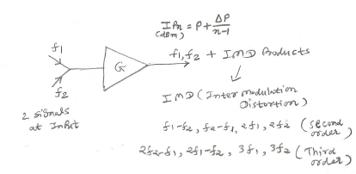 IPn = P + ΔP/n-1
(dBm)
f1
G
f1, f2 + IMD Products
f2
IMD (Inter modulation
Distortion)
2 signals
at Input
f1-f2, f2-f1, 2f1, 2f2 (Second
order)
2f2-f1, 2f1-f2, 3f1, 3f2 (Third
order)